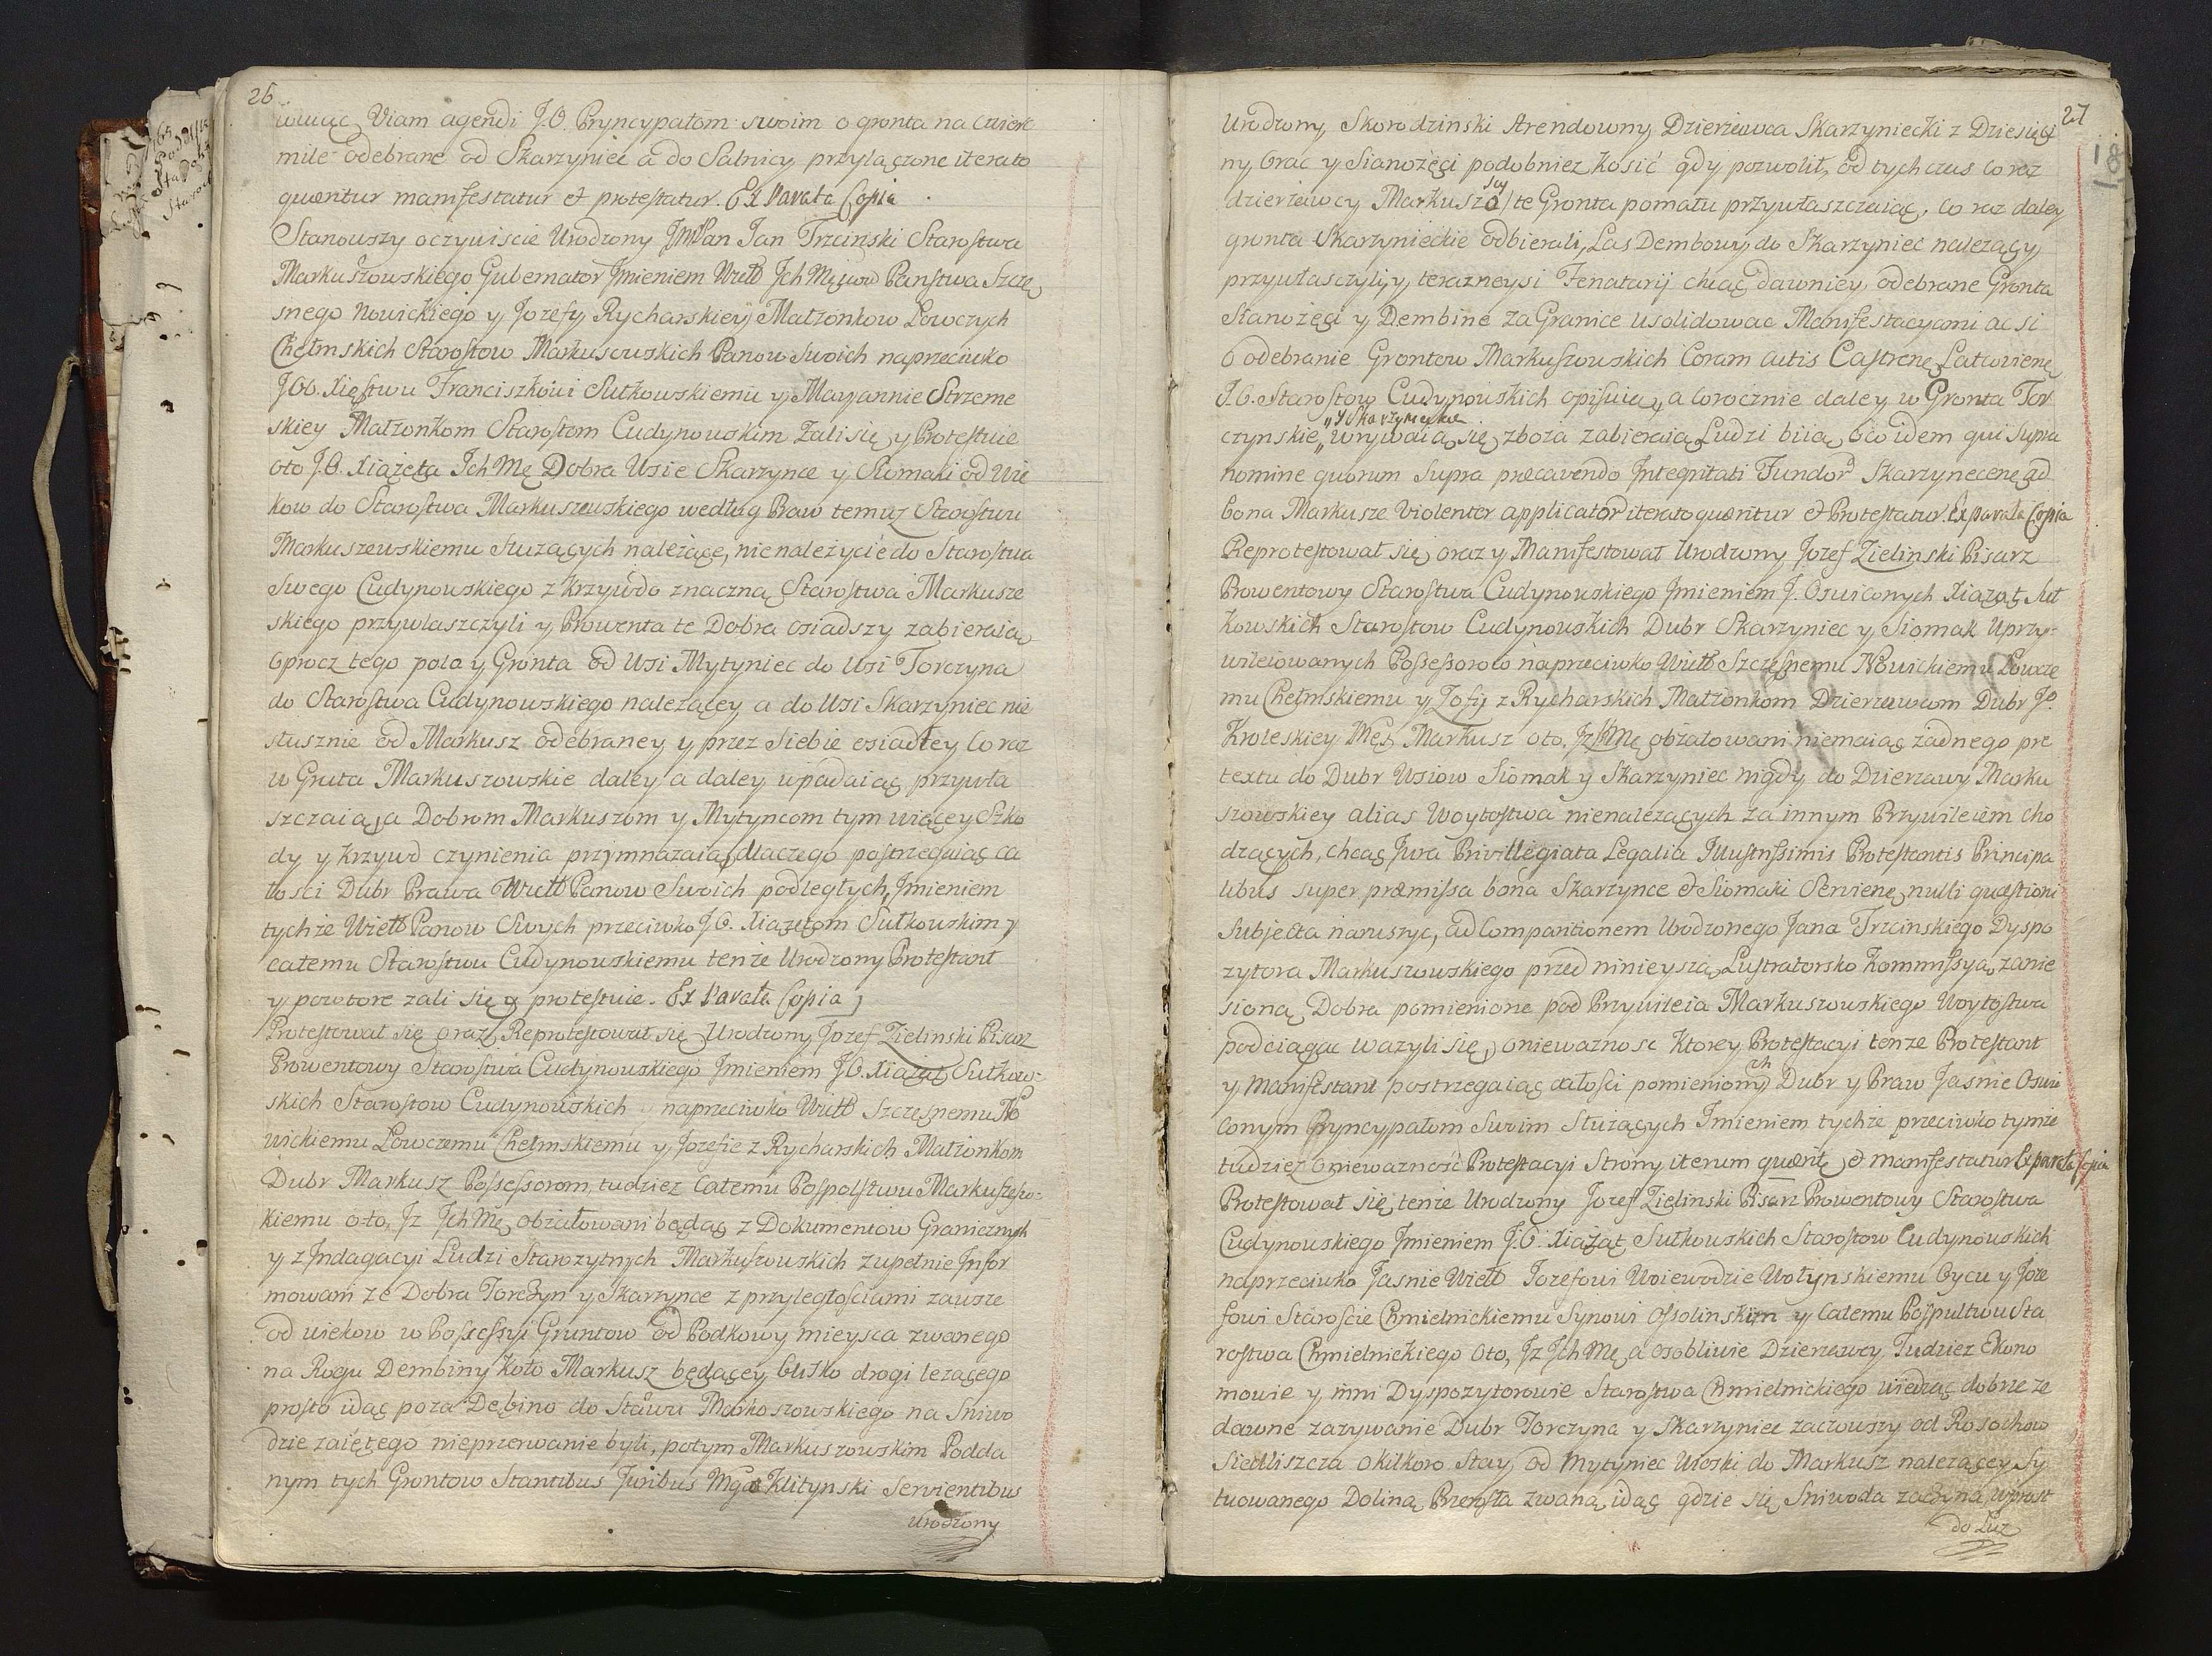 26
wując Viam agendi J.O. Pryncypałom swoim o gronta na cwierc
mile odebrane od Skarzyniec a do Salnicy przyłączone iterato
quæritur manifestatur et protestatur. Ex Parata Copia
Stanowszy oczywiscie Urodzony JmPan Jan Trzcinski Starostwa
Markuszowskiego Gubernator Jmieniem Wiell Jch Mściow Panstwa Szczę
snego Nowickiego y Jozefy Rycharskiey Małzonkow Łowczych
Chełmskich Starostow Markuszowskich Panow swoich naprzeciwko
JOO. Xięstwu Franciszkowi Sułkowskiemu y Maryannie Strzeme
skiey Małzonkom Starostom Cudynowskim Zali się y Protestuie
oto J.O. Xiążęta Jch Mę Dobra Wsie Skarzynce y Siomaki od Wie
kow do Starostwa Markuszewskiego według Praw temuz Starostwu
Markuszewskiemu służących należące, nie należycie do Starostwa
Swego Cudynowskiego z krzywdo znaczną Starostwa Markusze
skiego przywłaszczyli y Prowenta te Dobra osiadszy zabieraią
Oprocz tego pola y Gronta od Wsi Mytyniec do Wsi Torczyna
do Starostwa Cudynowskiego nalezącey a do Wsi Skarzyniec nie
słusznie od Markusz odebraney y przez siebie osiadłey Co raz
w Gruta Markuszowskie daley a daley wpadaiąc przywła
szczaią a Dobrom Markuszom y Mytyncom tym więcey Szko
dy y krzywd czynienia przymnazaią, dlaczego postrzegaiąc ca
łosci Dobr Prawa Wiell Panow Swoich podległych, Jmieniem
tychże Wiell Panow Swych przeciwko J.O. Xiążętom Sułkowskim y
całemu Starostwu Cudynowskiemu tenże Urodzony Protestant
y powtore zali się y protestuie. Ex Parata Copia
Protestował się oraz Reprotestował się Urodzony Jozef Zielinski Pisarz
Prowentowy Starostwa Cudynowskiego Jmieniem J.O. Xiążąt Sułkow-
skich Starostow Cudynowskich naprzeciwko Wiell Szczęsnemu No
wickiemu Łowczemu Chełmskiemu y Jozefie z Rycharskich Małzonkom
Dobr Markusz Possessorom, tudzież Całemu Pospolstwu Markuszews-
kiemu oto, Jz Jch Mę obzałowani będąc z Dokumentow Granicznych
y z Jndagacyi Ludzi Starozytnych Markuszowskich zupełnie Jnfor
mowani ze Dobra Torczyn y Skarzynce z przyległosciami zawsze
od wiekow w Possessyi Gruntow od Podkowy mieysca zwanego
na Rogu Dembiny koło Markusz będącey blisko drogi lezącego
prosto idąc poza Dębino do Stawu Markoszowskiego na Sniwo
dzie zaiętego nieprzerwanie byli, potym Markuszowskim Podda
nym tych Grontow Stantibus Juribus Mga Klitynski Servientibus
Urodzony
27
18
Urodzony Skorodzinski Arendowny Dzierżawca Skarzyniecki z Dziesięci
ny, Orac y Sianożęci podobniez kosić gdy pozwolił, od tych czas Co raz
dzierżawcy Markuszo scy te Gronta pomału przywłaszczaiąc, Co raz daley
gronta Skarzynieckie odbierali, Las Dembowy do Skarzyniec nalezący
przywłasczyli, y terazneysi Tenatarij chcąc dawniey odebrane Gronta
Sianożęci y Dembine za Granice usolidowac Manifestacyami ac si
o odebranie Grontow Markuszowskich Coram actis Castrenę Latwienę
J.O. Starostow Cudynowskich opisuią, a Corocznie daley w Gronta Tor
„y Skarzynieckie
czynskie „wrywaią się zboza zabieraią Ludzi biią, oco idem qui Supra
nomine quorum Supra præcavendo Jntegritati Fundor Skarzynecenę ad
bona Markusze violenter applicator iterato quæritur et Protestatur. Ex parata Copia
Reprotestował się oraz y Manifestował Urodzony Jozef Zielinski Pisarz
Prowentowy Starostwa Cudynowskiego Jmieniem J. Oswieconych Xiążąt Suł
kowskich Starostow Cudynowskich Dubr Skarzyniec y Siomak Uprzy-
wileiowanych Possessorow naprzeciwko Wiell Szczęsnemu Nowickiemu Łowcze
mu Chełmskiemu y Zofij z Rycharskich Małzonkom Dzierzawcom Dubr Jo.
Kroleskiey Mci Markusz oto, Jz JchMę obżałowani niemaiąc żadnego pre
textu do Dubr Wsiow Siomak y Skarzyniec nigdy do Dzierzawy Marku
szowskiey alias Woytostwa nienalezących za innym Przywileiem cho
dzących, chcąc Jura Privillegiata Legalia Jllustrissimis Protestantis Principa
libus super præmissa bona Skarzynce et Siomaki Servienę nulli quæstioni
Subjecta naruszyc, ad Comparitionem Urodzonego Jana Trzcinskiego Dyspo
zytora Markuszowskiego przed ninieyszą Lustratorsko Kommissyą zanie
sioną Dobra pomienione pod Przywileia Markuszowskiego Woytostwa
podciągac wazyli się, o niewaznosc ktorey Protestacyi tenze Protestant
y Manifestant postrzegaiąc całości pomienionych Dubr y Praw Jasnie Oswie
conym Pryncypałom Swoim Służących Jmieniem tychże przeciwko tymże
tudzież o nieważność Protestacyi Strony iterum quærit et manifestatur Ex parata Copia
Protestował się tenże Urodzony Jozef Zielinski Pisarz Prowentowy Starostwa
Cudynowskiego Jmieniem J.O. Xiążąt Sułkowskich Starostow Cudynowskich
naprzeciwko Jasnie Wiell Jozefowi Woiewodzie Wołynskiemu Oycu y Joze
fowi Staroscie Chmielnickiemu Synowi Ossolinskim y Całemu Pospulstwu Sta
rostwa Chmielnickiego oto, Jz Jch Mę a osobliwie Dzierzawcy, Tudziez Ekono
mowie y inni Dyspozytorowie Starostwa Chmielnickiego wiedząc dobrze ze
dawne zazywanie Dubr Torczyna y Skarzyniec zacząwszy od Rosochow
Siedliszcza o kilkoro Stay od Mytyniec Wioski do Markusz nalezącey Sy
tuowanego Doliną Przerosła zwaną, idąc gdzie się Sniwoda zaczyna wprost
do Łuz